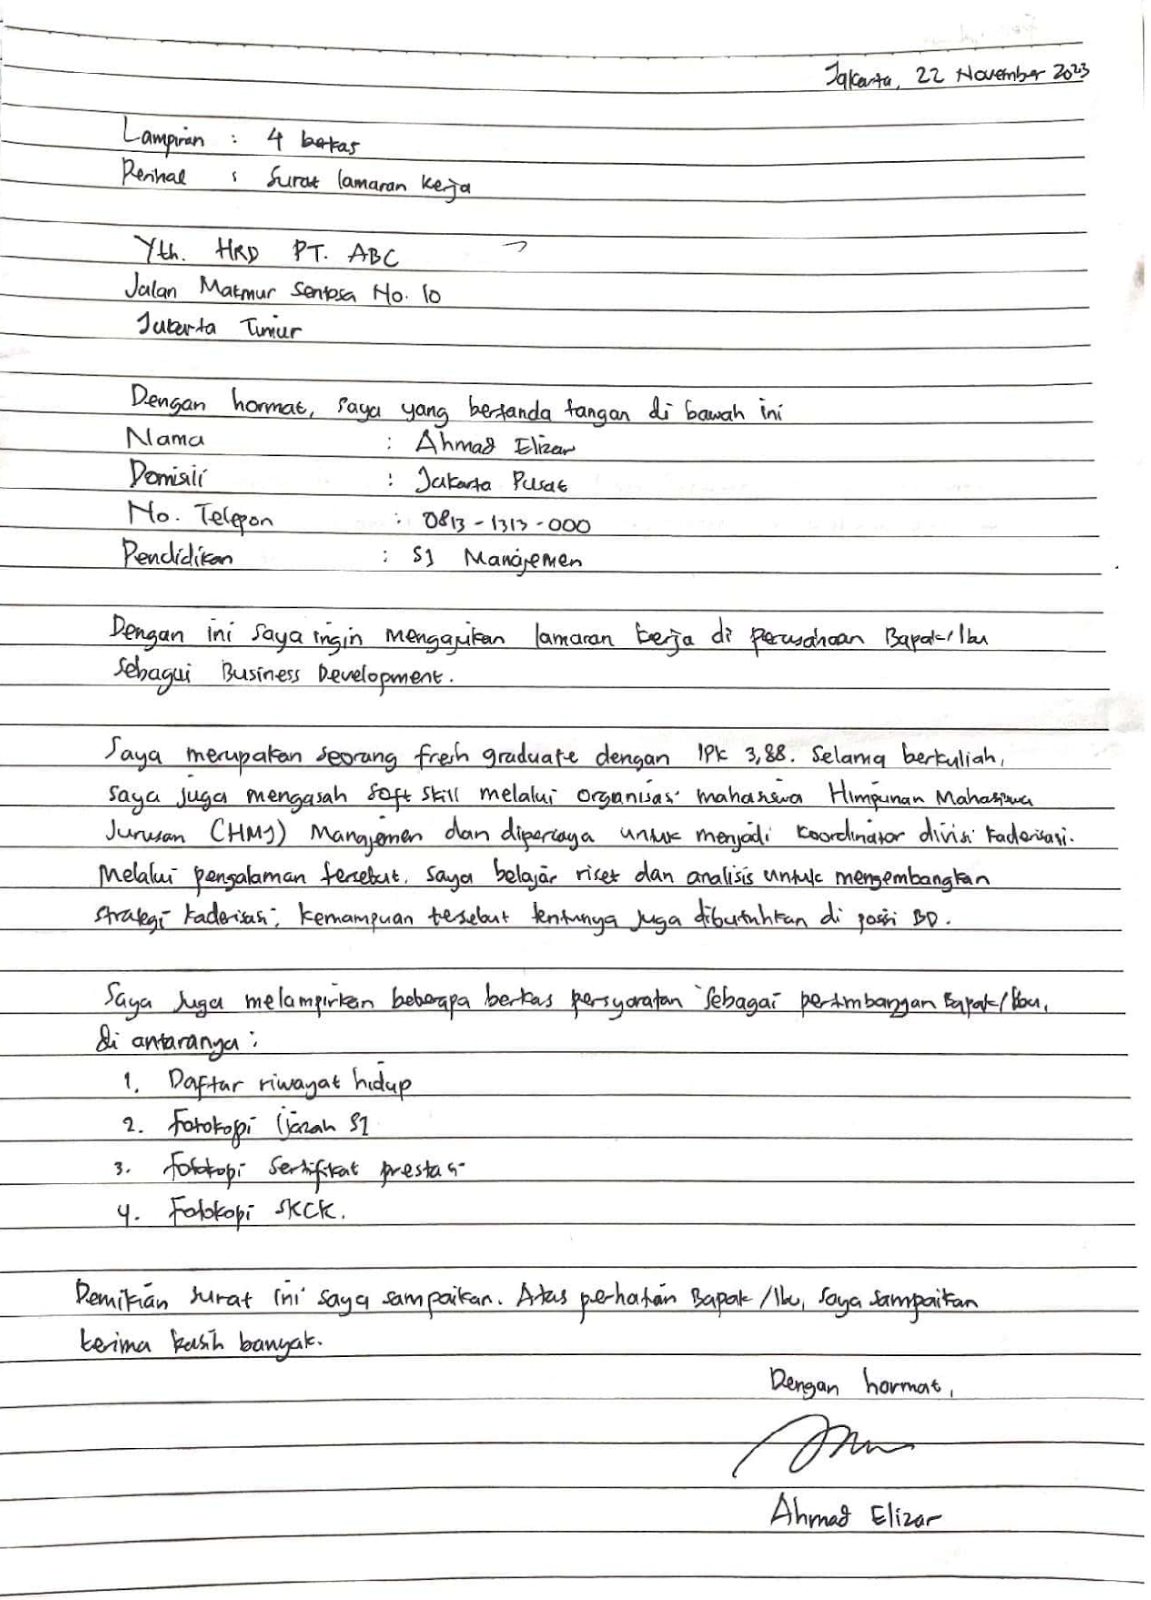 Jakarta, 22 November 2023
Lampiran : 4 berkas
Perihal : Surat lamaran kerja
Yth. HRD PT. ABC
Jalan Makmur Sentosa No. 10
Jakarta Timur
Dengan hormat, saya yang bertanda tangan di bawah ini
Nama : Ahmad Elizar
Domisili : Jakarta Pusat
No. Telepon : 0813-1313-000
Pendidikan : S1 Manajemen
Dengan ini saya ingin mengajukan lamaran kerja di perusahaan Bapak/Ibu
sebagai Business Development.
Saya merupakan seorang fresh graduate dengan IPK 3,88. Selama berkuliah,
saya juga mengasah soft skill melalui organisasi mahasiswa Himpunan Mahasiswa
Jurusan (HMJ) Manajemen dan dipercaya untuk menjadi koordinator divisi kaderisasi.
Melalui pengalaman tersebut, saya belajar riset dan analisis untuk mengembangkan
strategi kaderisasi; kemampuan tersebut tentunya juga dibutuhkan di posisi BD.
Saya juga melampirkan beberapa berkas persyaratan sebagai pertimbangan Bapak/Ibu,
di antaranya :
1. Daftar riwayat hidup
2. Fotokopi ijazah S1
3. Fotokopi sertifikat prestasi
4. Fotokopi SKCK.
Demikian surat ini saya sampaikan. Atas perhatian Bapak/Ibu, saya sampaikan
terima kasih banyak.
Dengan hormat,
Ahmad Elizar